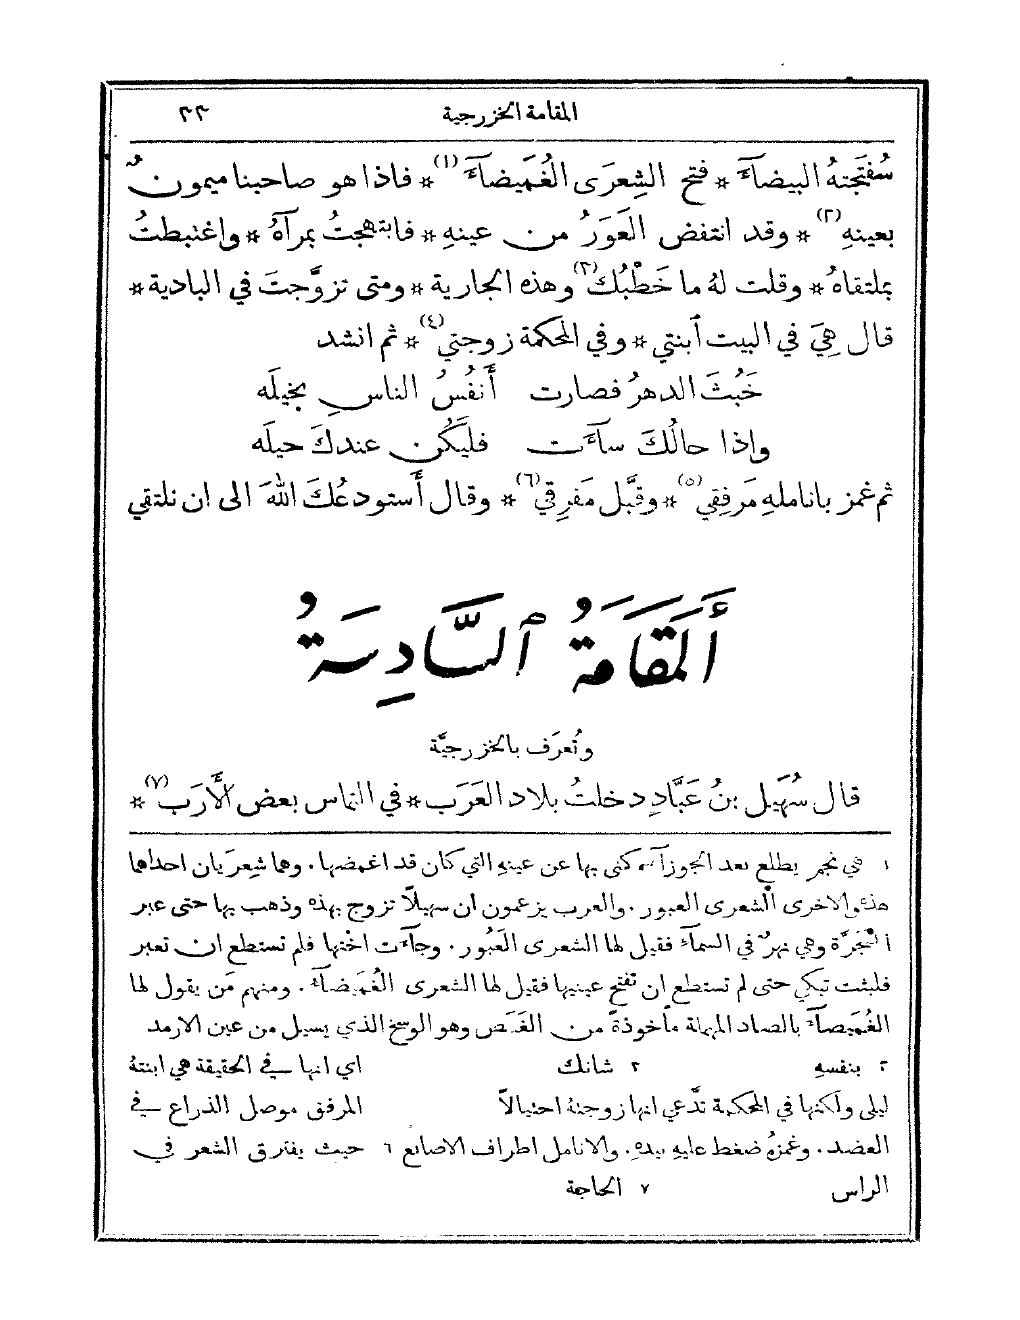 المقامة الخزرجية ٣٣
سُفتَجتهُ البيضآءَ * فتح الشِعرَى الغُمَيضآءَ (١) * فاذا هو صاحبنا ميمونٌ
بعينهِ (٢) * وقد انتفض العَوَرُ من عينهِ * فابتهجتُ بمرآهُ * واغتبطتُ
بملتقاهُ * وقلت لهُ ما خَطْبُكَ (٣) وهذه الجارية * ومتى تزوَّجتَ في البادية *
قال هِيَ في البيت ٱبنتي * وفي المحكمة زوجتي (٤) * ثم انشد
خَبُثَ الدهرُ فصارت أَنفُسُ الناسِ بخيلَه
واذا حالُكَ سآءَت فليَكُن عندكَ حيلَه
ثم غمز باناملهِ مَرفِقي (٥) * وقبَّل مَفرِقي (٦) * وقال أَستودعُكَ اللهَ الى ان نلتقي
أَلمَقَامَةُ ٱلسَّادِسَةُ
وتُعرَف بالخزرجيَّة
قال سُهَيل بنُ عَبَّادٍ دخلتُ بلاد العَرَب * في التماس بعض الأَرَب (٧) *
١ هي نجم يطلع بعد الجوزآء كنى بها عن عينهِ التي كان قد اغمضها. وهما شعرَيان احداهما
هذه والاخرى الشعرى العبور. والعرب يزعمون ان سهيلاً تزوج بهذه وذهب بها حتى عبر
المَجَرَّة وهي نهرٌ في السمآء فقيل لها الشعرى العَبُور. وجآءَت اختها فلم تستطع ان تعبر
فلبثت تبكي حتى لم تستطع ان تفتح عينيها فقيل لها الشعرى الغُمَيضآءَ. ومنهم مَن يقول لها
الغُمَيصآءَ بالصاد المهملة مأخوذةً من الغَمَص وهو الوسخ الذي يسيل من عين الارمد
٢ بنفسهِ ٣ شانك اي انها في الحقيقة هي ابنتهُ
ليلى ولكنها في المحكمة تدَّعي انها زوجتهُ احتيالاً المرفق موصل الذراع في
العضد. وغمزهُ ضغط عليهِ بيدهِ. والانامل اطراف الاصابع ٦ حيث يفترق الشعر في
الراس ٧ الحاجة